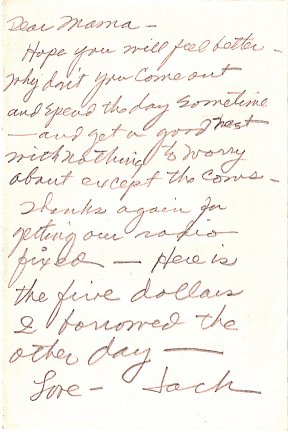 Dear Mama -
Hope you will feel better -
Why don't you come out
and spend the day sometime
- and get a good rest
with nothing to worry
about except the cows -
Thanks again for
getting our radio
fixed - Here is
the five dollars
I borrowed the
other day -
Love - Jack